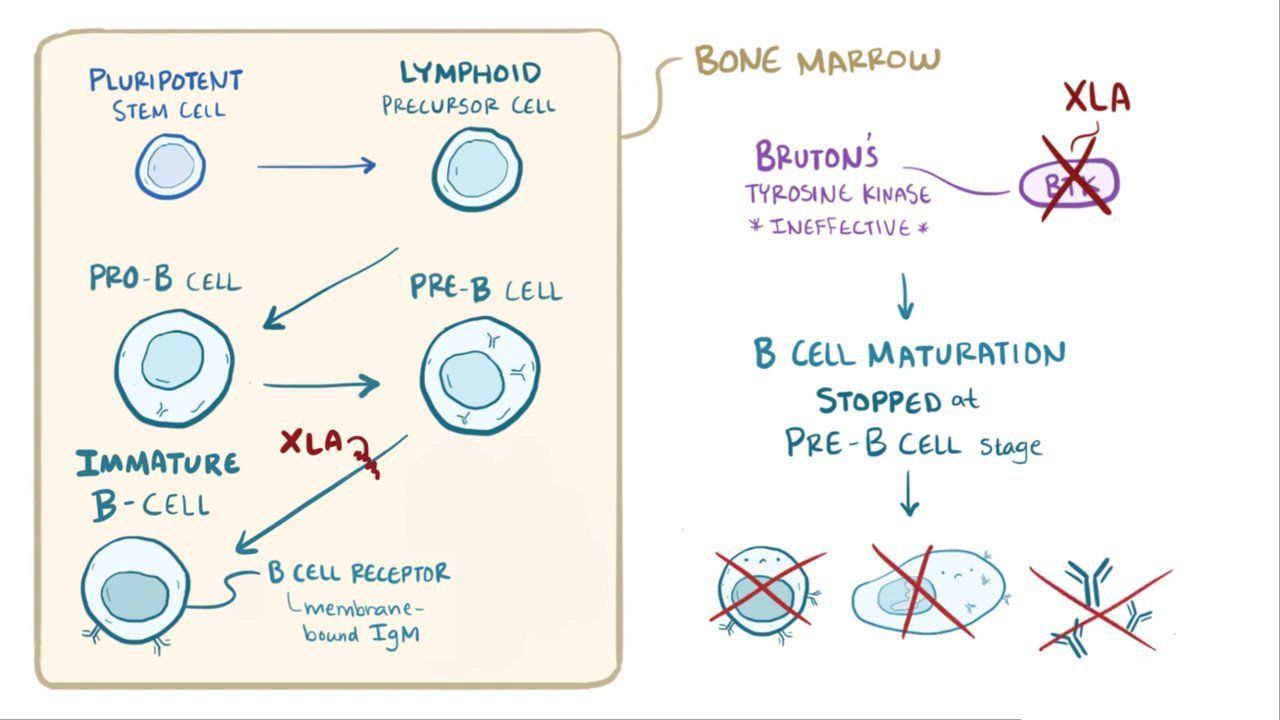 PLURIPOTENT
STEM CELL
LYMPHOID
PRECURSOR CELL
PRO-B CELL
PRE-B CELL
XLA
IMMATURE
B-CELL
B CELL RECEPTOR
membrane-
bound IgM
BONE MARROW
XLA
BRUTON'S
TYROSINE KINASE
* INEFFECTIVE *
BTK
B CELL MATURATION
STOPPED at
PRE-B CELL stage